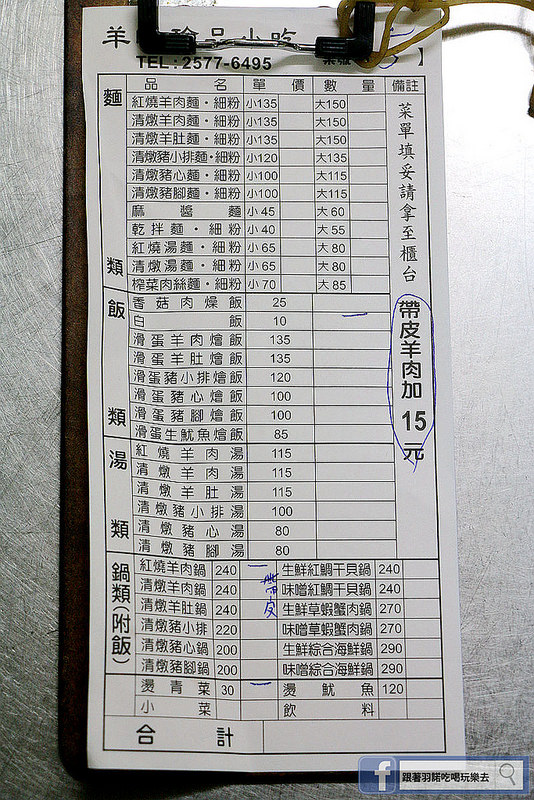 羊 珍品小吃
TEL:2577-6495 】
品 名 單 價 數 量 備註
麵類
紅燒羊肉麵・細粉 小135 大150
清燉羊肉麵・細粉 小135 大150
清燉羊肚麵・細粉 小135 大150
清燉豬小排麵・細粉 小120 大135
清燉豬心麵・細粉 小100 大115
清燉豬腳麵・細粉 小100 大115
麻醬麵 小45 大60
乾拌麵・細粉 小40 大55
紅燒湯麵・細粉 小65 大80
清燉湯麵・細粉 小65 大80
榨菜肉絲麵・細粉 小70 大85
飯類
香菇肉燥飯 25
白飯 10 一
滑蛋羊肉燴飯 135
滑蛋羊肚燴飯 135
滑蛋豬小排燴飯 120
滑蛋豬心燴飯 100
滑蛋豬腳燴飯 100
滑蛋生魷魚燴飯 85
湯類
紅燒羊肉湯 115
清燉羊肉湯 115
清燉羊肚湯 115
清燉豬小排湯 100
清燉豬心湯 80
清燉豬腳湯 80
鍋類(附飯)
紅燒羊肉鍋 240 一 生鮮紅鯛干貝鍋 240
清燉羊肉鍋 240 味噌紅鯛干貝鍋 240
清燉羊肚鍋 240 生鮮草蝦蟹肉鍋 270
清燉豬小排 220 味噌草蝦蟹肉鍋 270
清燉豬心鍋 200 生鮮綜合海鮮鍋 290
清燉豬腳鍋 200 味噌綜合海鮮鍋 290
帶皮
燙青菜 30 一 燙魷魚 120
小菜 飲料
合計
菜單填妥請拿至櫃台
帶皮羊肉加15元
f 跟著羽諾吃喝玩樂去